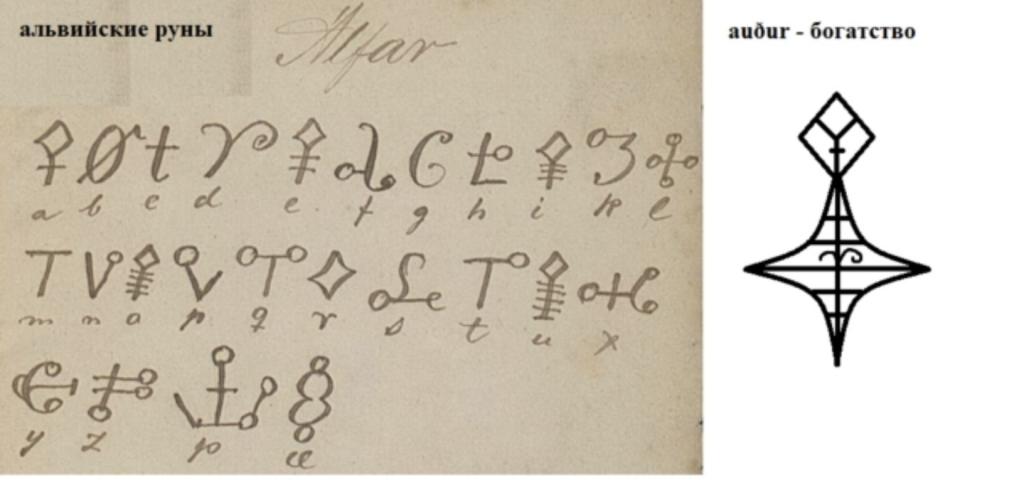 альвийские руны
Alfar
auður - богатство
a b c d e f g h i k l
m n o p q r s t u x
y z þ æ